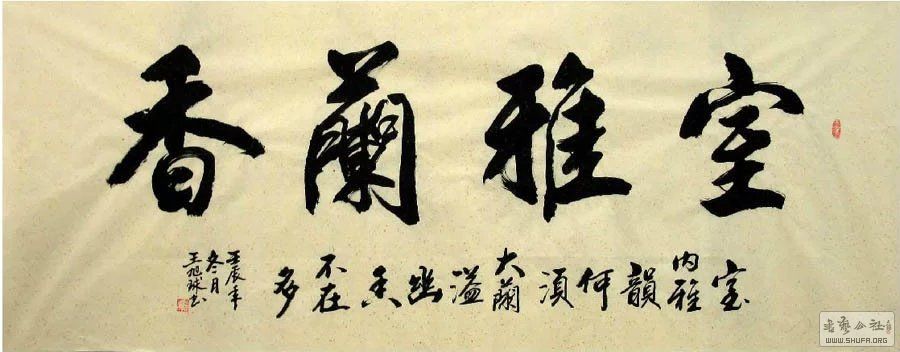 室雅蘭香
室内雅韻何須大蘭溢幽香不在多
壬辰年
冬月
王旭球书
书艺公社
WWW.SHUFA.ORG